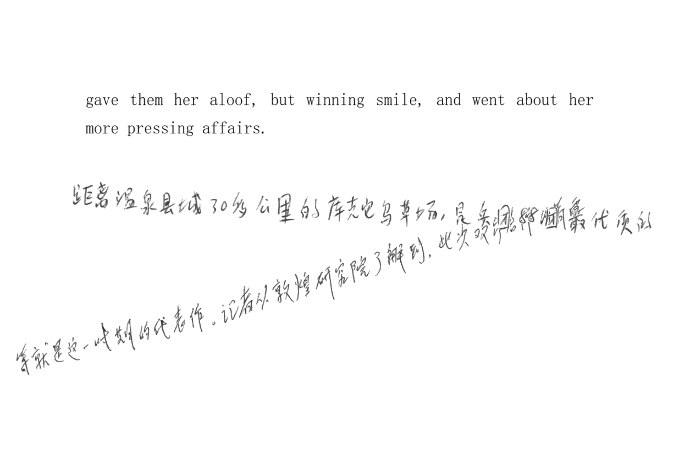 gave them her aloof, but winning smile, and went about her
more pressing affairs.
距离温泉县城30多公里的库克它乌草场,是最优质的
等就是这一时期的代表作。记者从敦煌研究院了解到,此次